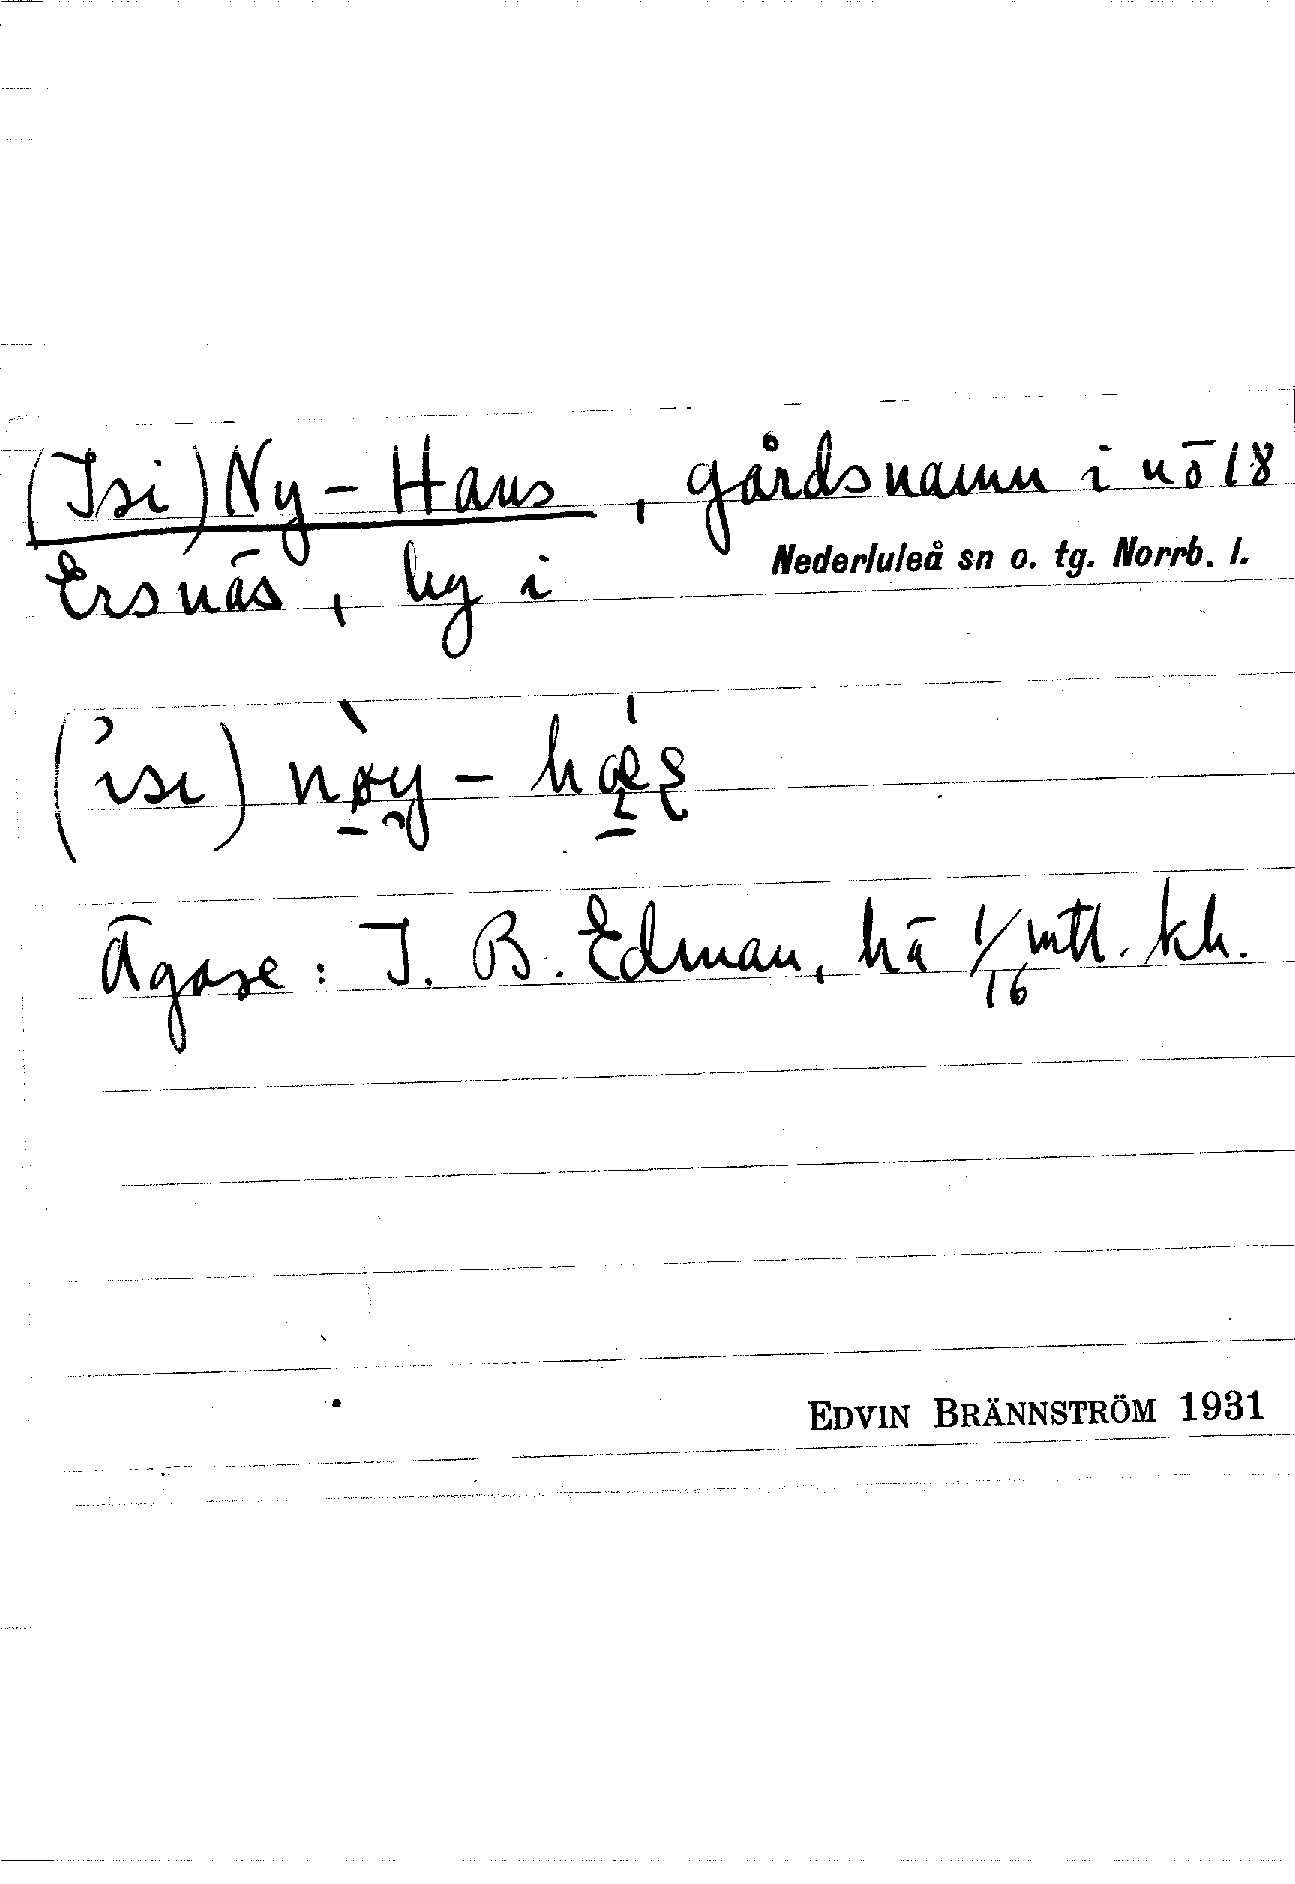 (Isi) Ny-Hans, gårdsnamn i nō 18
Ersnäs, by i Nederluleå sn o. tg. Norrb. l.
(isi)
Ägare: J. B. Edman, ha 1/16 mtl. kh.
EDVIN BRÄNNSTRÖM 1931